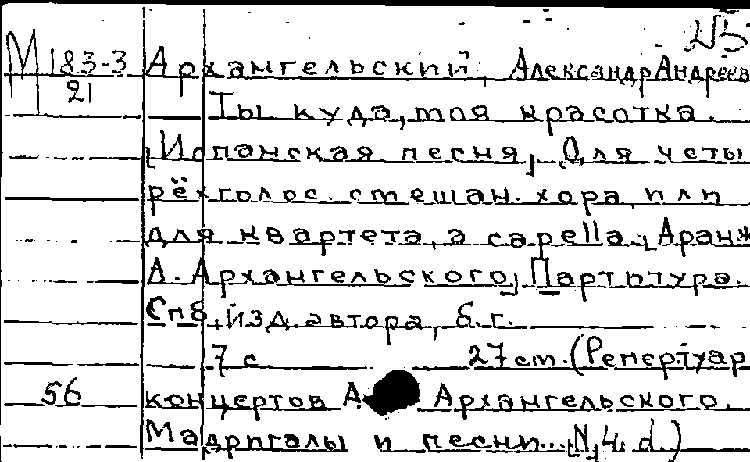 М 183-3 Архангельский, Александр Андреев
21 Ты куда, моя красотка.
[Испанская песня] Для четы
рёхголос. смешан. хора или
для квартета, a capella. [Аранж
А. Архангельского] Партитура.
Спб, изд. автора, б.г.
7 с 27 cm. (Репертуар
56 концертов А. Архангельского.
Мадригалы и песни... N 4. d.)